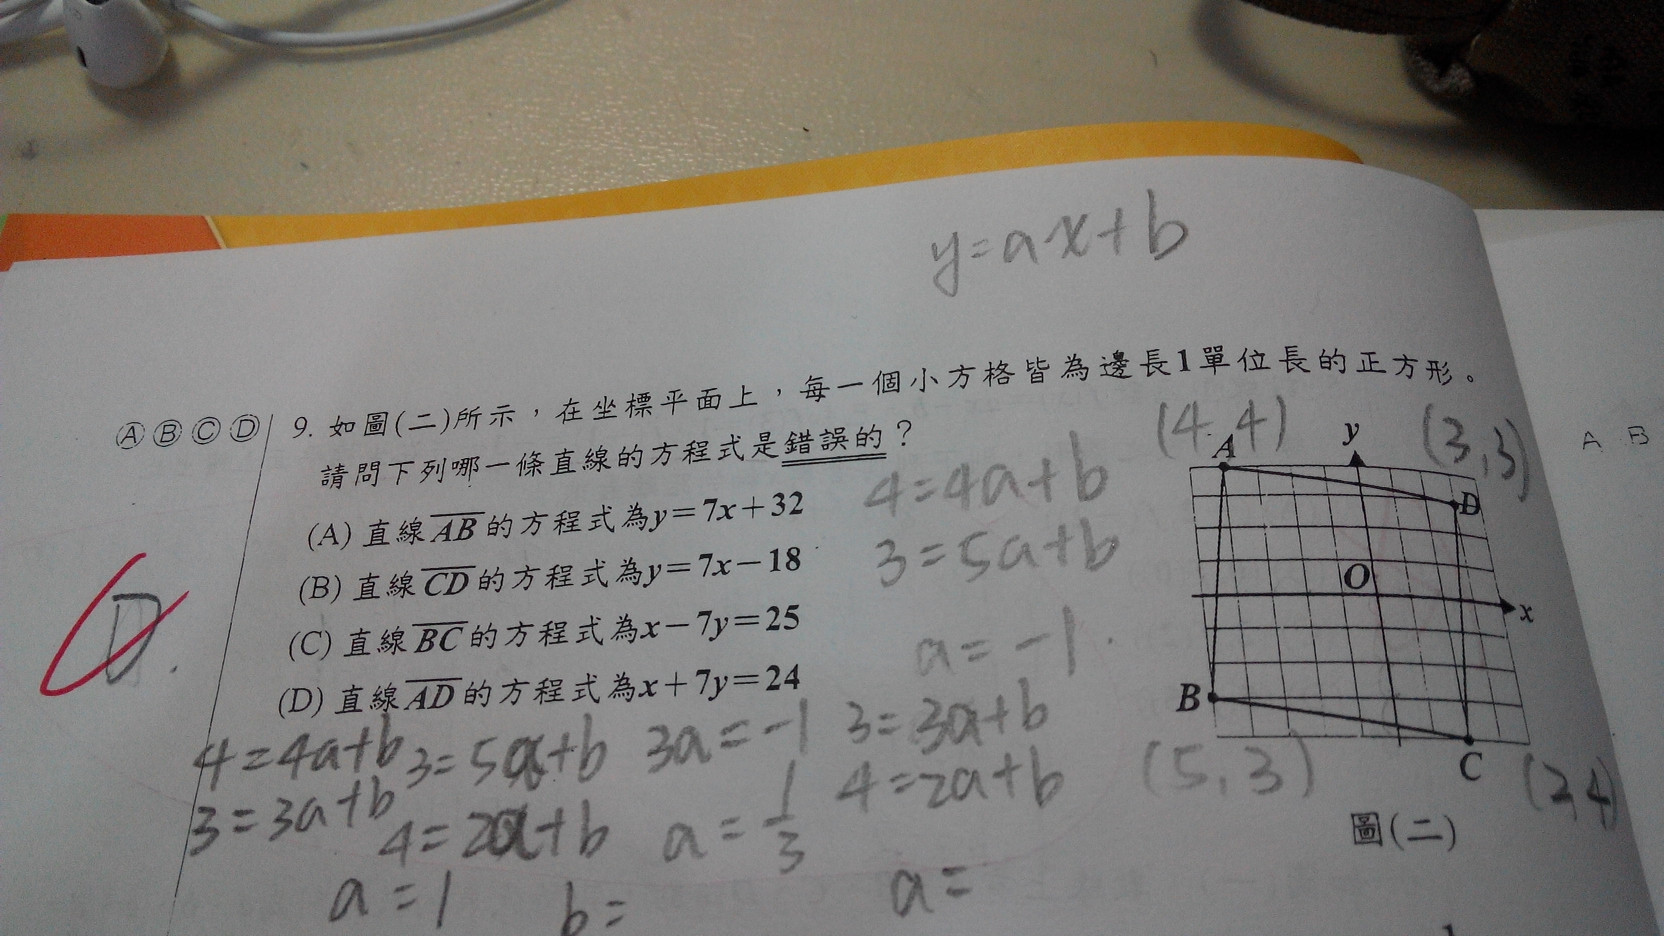 y=ax+b
Ⓐ Ⓑ Ⓒ Ⓓ 9. 如圖(二)所示，在坐標平面上，每一個小方格皆為邊長1單位長的正方形。
請問下列哪一條直線的方程式是錯誤的？
(A) 直線AB的方程式為y=7x+32
(B) 直線CD的方程式為y=7x-18
(C) 直線BC的方程式為x-7y=25
(D) 直線AD的方程式為x+7y=24
D.
4=4a+b
3=5a+b
a=-1
4=4a+b
3=3a+b
a=1
3=5a+b
4=2a+b
b=
3a=-1
a=1/3
3=3a+b
4=2a+b
a=
(4,4)
(3,3)
A
y
D
O
x
B
C
(5,3)
(2,4)
圖(二)
A B